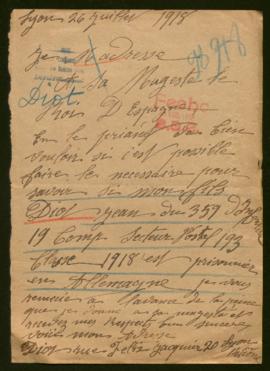 Lyon 26 juillet 1918
Je M adresse
A Sa Magesté le
Diot.
Roi D Espagne
En le priant de bien
vouloir si c'est possible
faire le nécessaire pour
savoir si mon fils
Diot Jean du 359 d'Infanterie
19 Comp Secteur Postal 193
Classe 1918 est prisonnier
en Allemagne je vous
remercie a l'avance de la peine
que je donne a sa magesté et
recevez mes respects bien sincere
voici mon adresse
Diot rue Felix Jacquier 20 Lyon